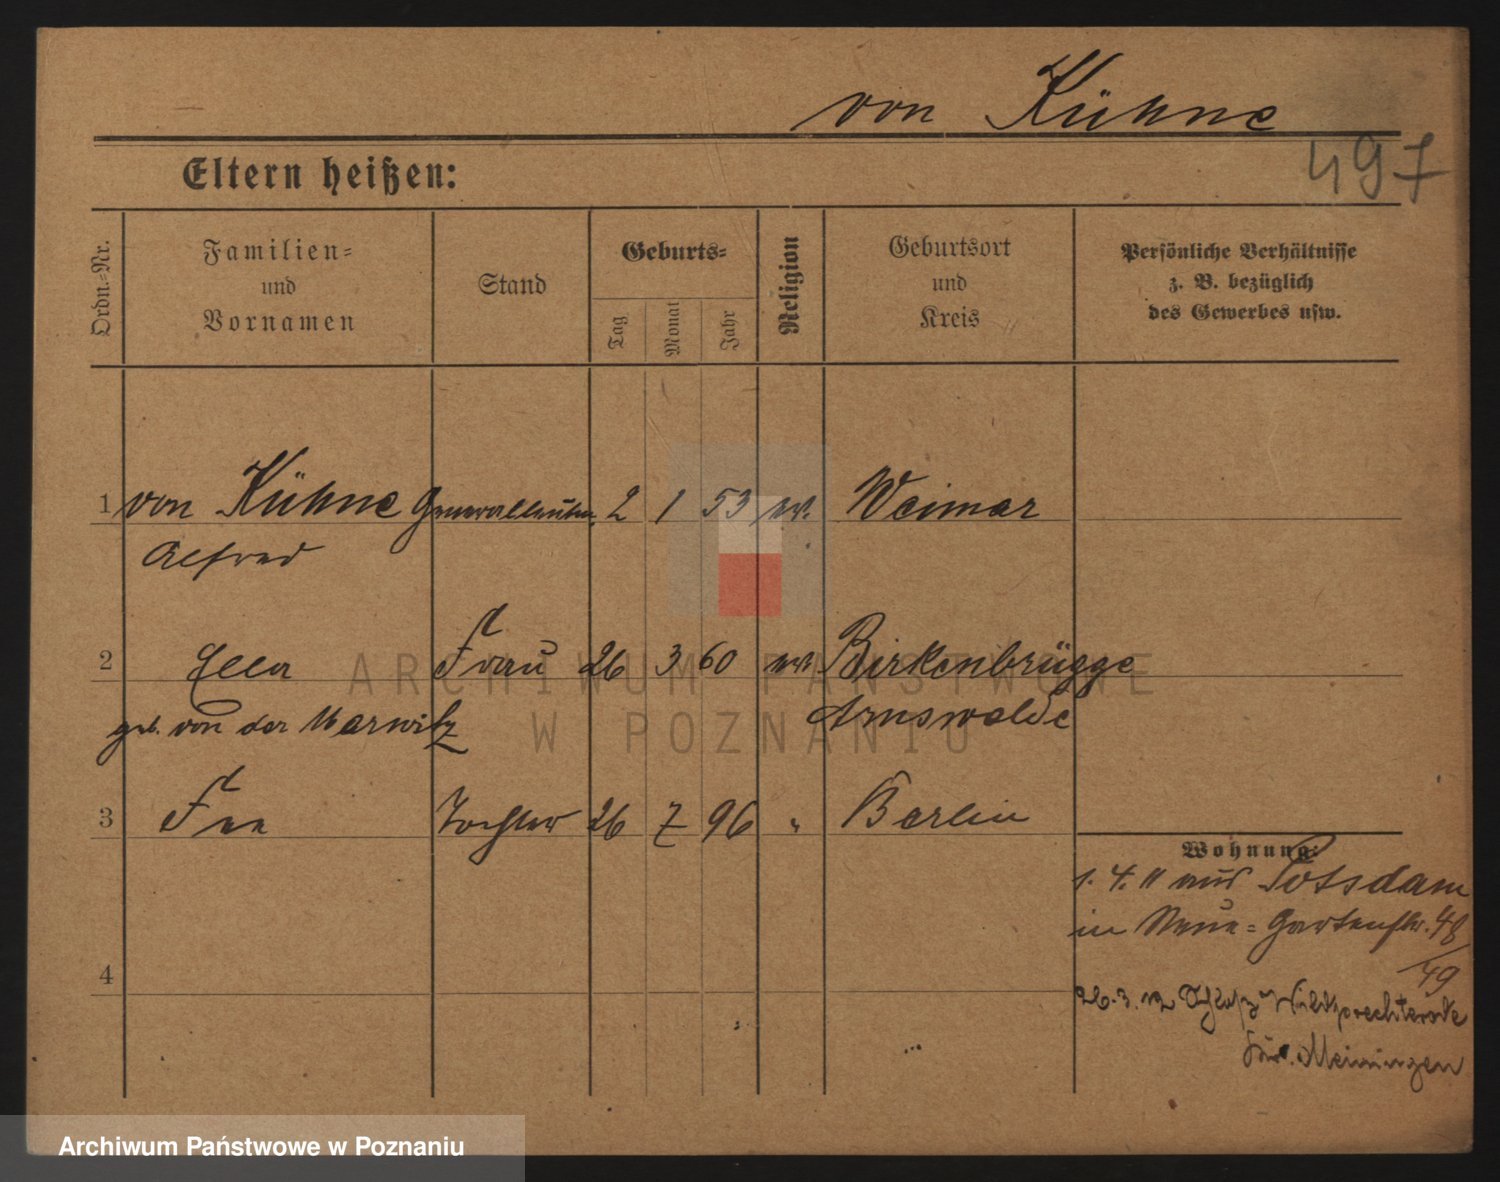 von Kühne
497
Eltern heißen:
Ordn.-Nr.
Familien-
und
Vornamen
Stand
Geburts-
Tag
Monat
Jahr
Religion
Geburtsort
und
Kreis
Persönliche Verhältnisse
z. B. bezüglich
des Gewerbes usw.
1 von Kühne Generalleutn. 2 1 53 ev. Weimar
Alfred
2 Ella Frau 26 3 60 ev. Birkenbrügge
geb. von der Marwitz Arnswalde
3 Fee Tochter 26 7 96 " Berlin
Wohnung:
1. 4. 11 aus Potsdam
in Neue-Gartenstr. 48/49
4
26.3.12 Schloß
Meiningen
ARCHIWUM PAŃSTWOWE
W POZNANIU
Archiwum Państwowe w Poznaniu